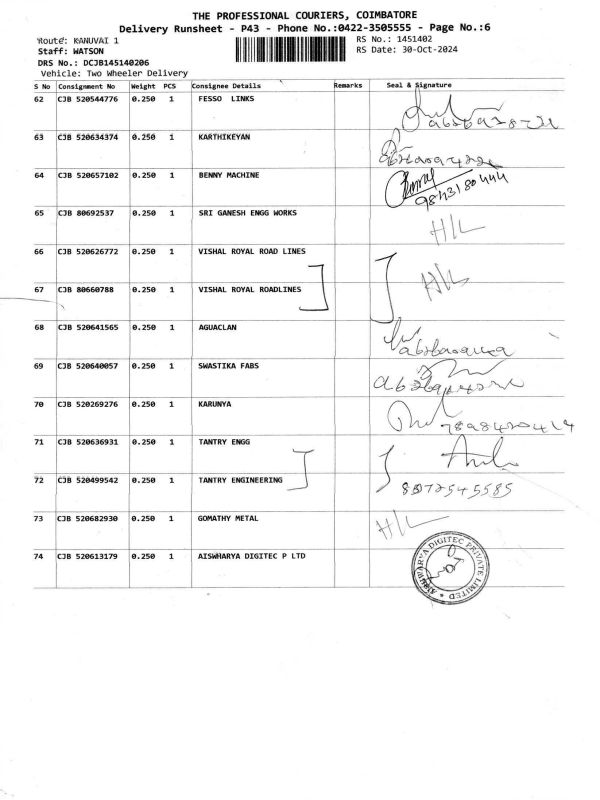 THE PROFESSIONAL COURIERS, COIMBATORE
Delivery Runsheet - P43 - Phone No.:0422-3505555 - Page No.:6
Route: KANUVAI 1 RS No.: 1451402
Staff: WATSON RS Date: 30-Oct-2024
DRS No.: DCJB145140206
Vehicle: Two Wheeler Delivery
S No Consignment No Weight PCS Consignee Details Remarks Seal & Signature
62 CJB 520544776 0.250 1 FESSO LINKS
63 CJB 520634374 0.250 1 KARTHIKEYAN
64 CJB 520657102 0.250 1 BENNY MACHINE 9843180444
65 CJB 80692537 0.250 1 SRI GANESH ENGG WORKS H/L
66 CJB 520626772 0.250 1 VISHAL ROYAL ROAD LINES
67 CJB 80660788 0.250 1 VISHAL ROYAL ROADLINES H/L
68 CJB 520641565 0.250 1 AGUACLAN
69 CJB 520640057 0.250 1 SWASTIKA FABS
70 CJB 520269276 0.250 1 KARUNYA
71 CJB 520636931 0.250 1 TANTRY ENGG
72 CJB 520499542 0.250 1 TANTRY ENGINEERING 8072545585
73 CJB 520682930 0.250 1 GOMATHY METAL H/L
74 CJB 520613179 0.250 1 AISWHARYA DIGITEC P LTD
AISHWARYA DIGITEC PRIVATE LIMITED